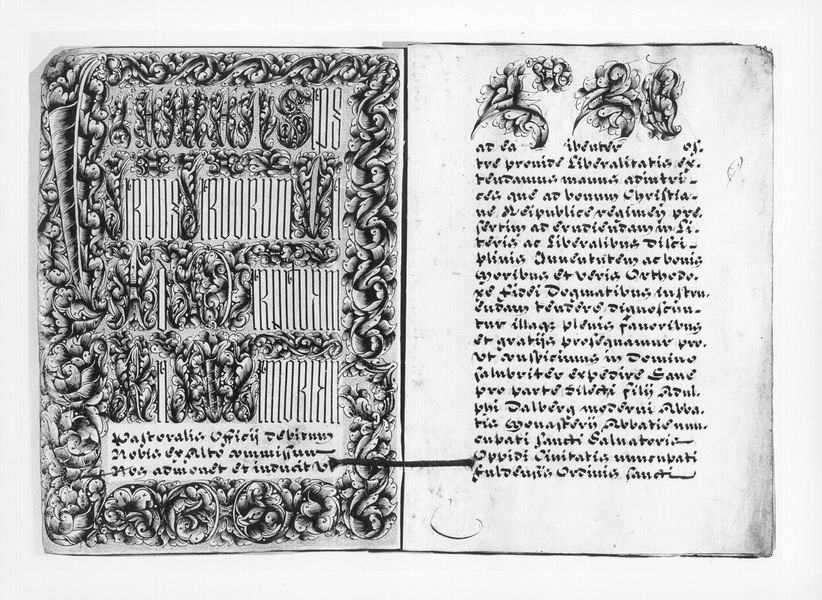 CLEMENS EPS
SERVUS SERVORUM
AD PERPETUAM
REI MEMORIAM
Pastoralis Officij debitum
Nobis ex Alto commissum
Nos admonet et inducit
ad ea ibenter os-
tre provide Liberalitatis ex-
tendamus manus adiutri-
ces que ad bonum Christia-
ne Reipublice regimen pre-
sertim ad erudiendam in Li-
teris ac Liberalibus Disci-
plinis Iuventutem ac bonis
Moribus et veris Orthodo-
xe Fidei Dogmatibus instru-
endam tendere dignoscun-
tur illaq; plenis favoribus
et gratijs prosequamur pro-
ut conspicimus in Domino
salubriter expedire Sane
pro parte Dilecti Filij Adul-
phi Dalberg moderni Abba-
tis Monasterij Abbatie nun-
cupati Sancti Salvatoris
Oppidi Civitatis nuncupati
Fuldensis Ordinis Sancti